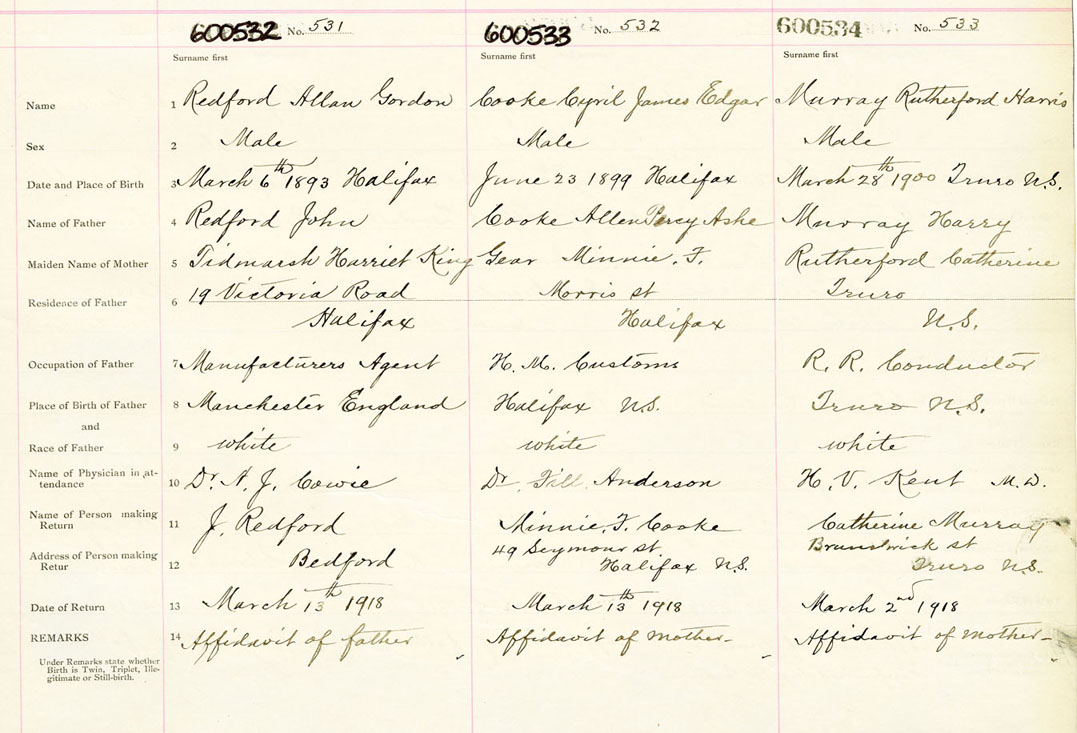 600532 No. 531 600533 No. 532 600534 No. 533
Surname first Surname first Surname first
Name 1 Redford Allan Gordon Cooke Cyril James Edgar Murray Rutherford Harris
Sex 2 Male Male Male
Date and Place of Birth 3 March 6th 1893 Halifax June 23 1899 Halifax March 28th 1900 Truro N.S.
Name of Father 4 Redford John Cooke Allen Percy Ashe Murray Harry
Maiden Name of Mother 5 Tidmarsh Harriet King Gear Minnie. F. Rutherford Catherine
Residence of Father 6 19 Victoria Road Morris st Truro
Halifax Halifax N.S.
Occupation of Father 7 Manufacturers Agent H. M. Customs R. R. Conductor
Place of Birth of Father 8 Manchester England Halifax N.S. Truro N.S.
and
Race of Father 9 white white white
Name of Physician in at-
tendance 10 Dr. A. J. Cowie Dr. Anderson H. V. Kent M.D.
Name of Person making
Return 11 J. Redford Minnie. F. Cooke Catherine Murray
Address of Person making 49 Seymour st Brunswick st
Retur 12 Bedford Halifax N.S. Truro N.S.
Date of Return 13 March 13th 1918 March 13th 1918 March 2nd 1918
REMARKS 14 Affidavit of father Affidavit of mother- Affidavit of mother-
Under Remarks state whether
Birth is Twin, Triplet, Ille-
gitimate or Still-birth.